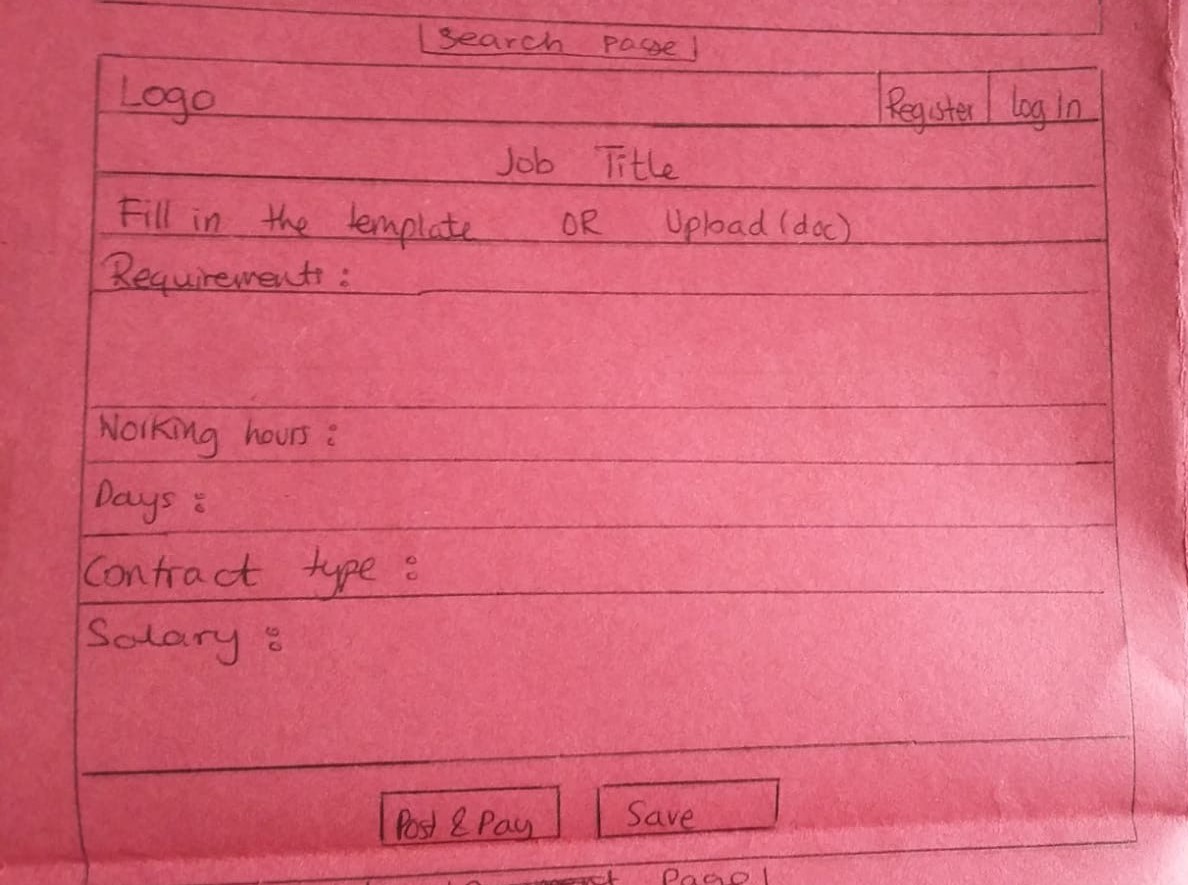 Search page
Logo Register Log In
Job Title
Fill in the template OR Upload (doc)
Requirements :
Working hours :
Days :
Contract type :
Salary :
Post & Pay Save
Page